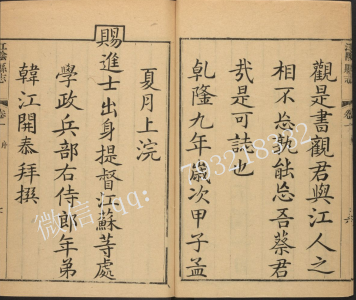 觀是書觀君與江人之
相不忘孰能忘吾蔡君
哉是可誌也
乾隆九年歲次甲子孟
夏月上浣
賜進士出身提督江蘇等處
學政兵部右侍郎年弟
韓江開泰拜撰
江陰縣志
卷一